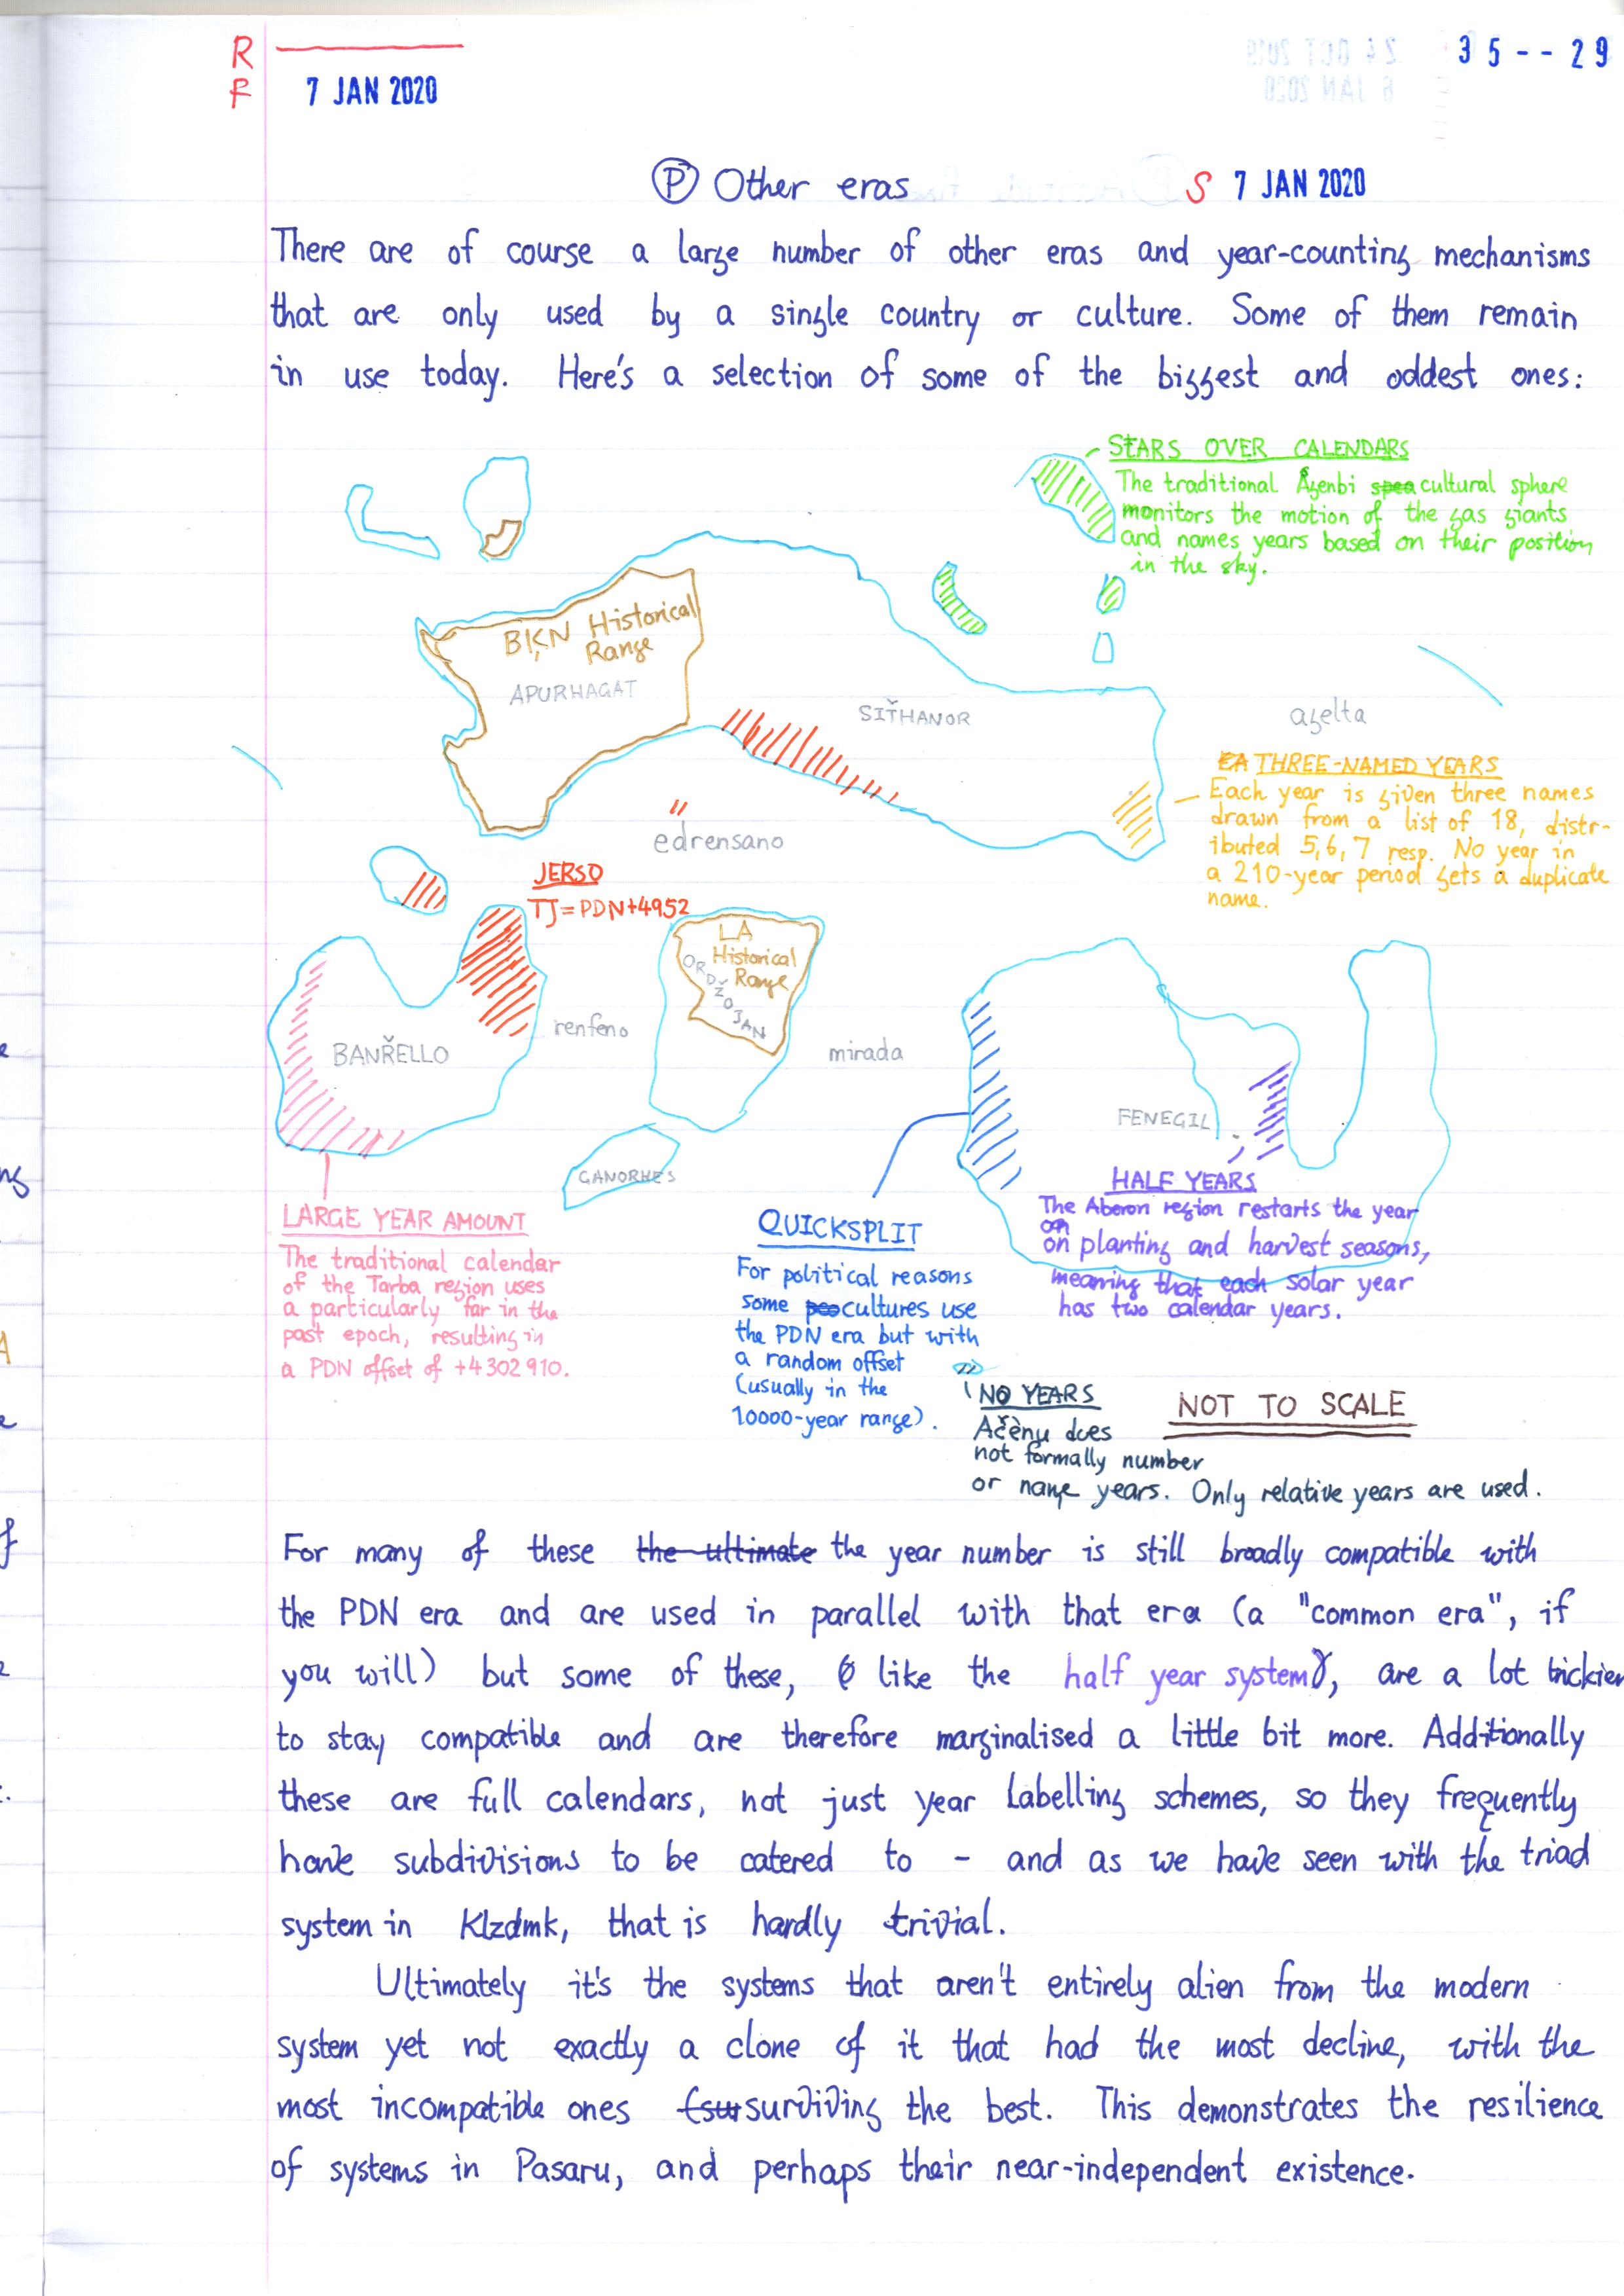 R
F
7 JAN 2020
35--29
Ⓟ Other eras
S 7 JAN 2020
There are of course a large number of other eras and year-counting mechanisms
that are only used by a single country or culture. Some of them remain
in use today. Here's a selection of some of the biggest and oddest ones:
STARS OVER CALENDARS
The traditional Ågenbi cultural sphere
monitors the motion of the gas giants
and names years based on their position
in the sky.
BĶN Historical
Range
APURHAGAT
SIŤHANOR
agelta
THREE-NAMED YEARS
Each year is given three names
drawn from a list of 18, distr-
ibuted 5,6,7 resp. No year in
a 210-year period gets a duplicate
name.
edrensano
JERSO
TJ=PDN+4952
LA
Historical
Range
ORDŽOJAN
BANŘELLO
renfeno
mirada
FENEGIL
GANORHES
LARGE YEAR AMOUNT
The traditional calendar
of the Tarba region uses
a particularly far in the
past epoch, resulting in
a PDN offset of +4302910.
QUICKSPLIT
For political reasons
some cultures use
the PDN era but with
a random offset
(usually in the
10000-year range).
HALF YEARS
The Aberon region restarts the year
on planting and harvest seasons,
meaning that each solar year
has two calendar years.
NO YEARS
Ačènu does
not formally number
or name years. Only relative years are used.
NOT TO SCALE
For many of these the ultimate the year number is still broadly compatible with
the PDN era and are used in parallel with that era (a "common era", if
you will) but some of these, like the half year system, are a lot trickier
to stay compatible and are therefore marginalised a little bit more. Additionally
these are full calendars, not just year labelling schemes, so they frequently
have subdivisions to be catered to - and as we have seen with the triad
system in Klzdmk, that is hardly trivial.
Ultimately it's the systems that aren't entirely alien from the modern
system yet not exactly a clone of it that had the most decline, with the
most incompatible ones surviving the best. This demonstrates the resilience
of systems in Pasaru, and perhaps their near-independent existence.